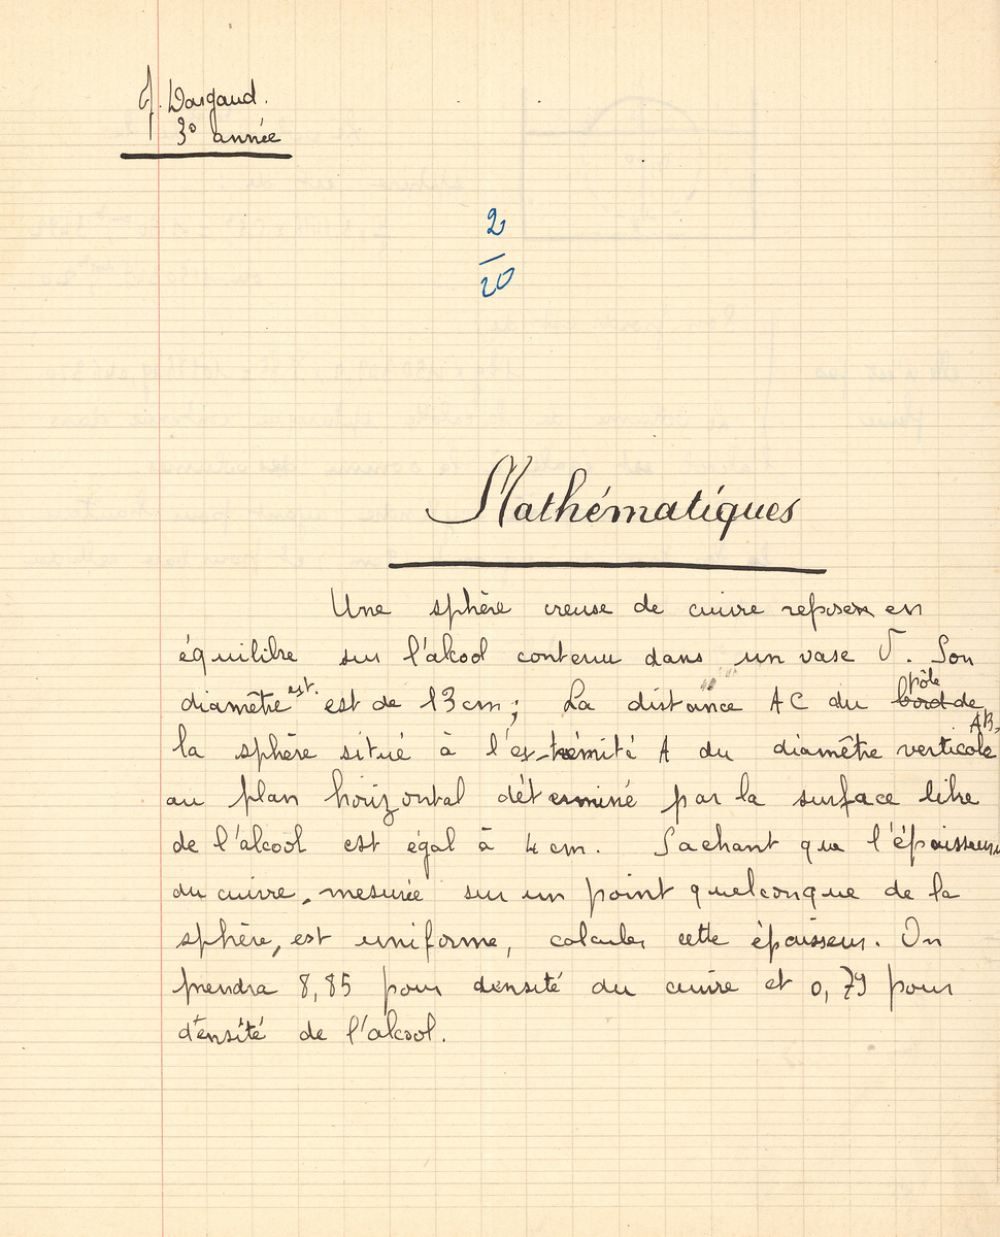 J. Dargaud.
3e année
2
20
Mathématiques
Une sphère creuse de cuivre repose en
équilibre sur l'alcool contenu dans un vase V. Son
diamêtre est. est de 13cm; La distance AC du pôle
bord de
la sphère situé à l'extrémité A du diamêtre verticale AB,
au plan horizontal déterminé par la surface libre
de l'alcool est égal à 4 cm. Sachant que l'épaisseur
du cuivre, mesurée sur un point quelconque de la
sphère, est uniforme, calculer cette épaisseur. On
prendra 8,85 pour densité du cuivre et 0,79 pour
densité de l'alcool.